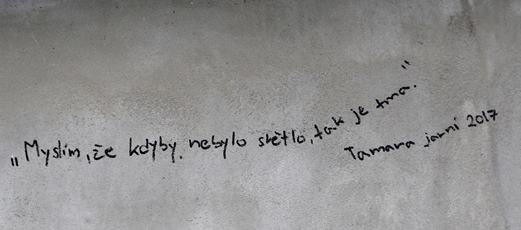 „Myslim, že kdyby nebylo světlo, tak je tma."
Tamara jarní 2017